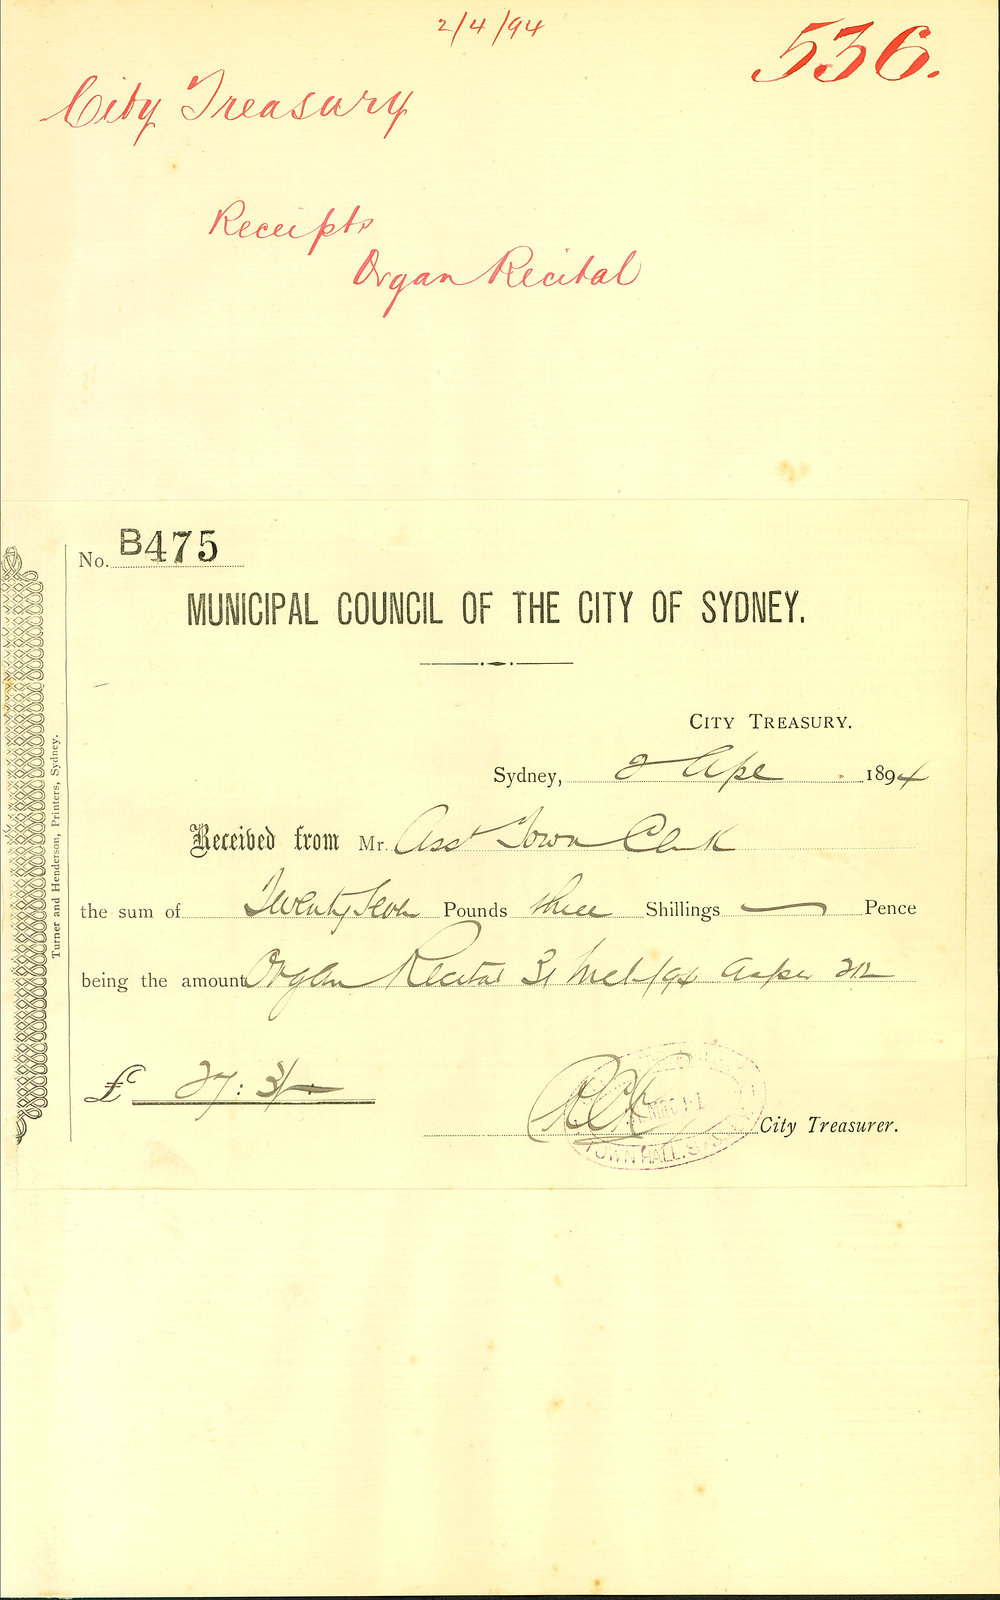 2/4/94
536.
City Treasury
Receipts
Organ Recital
No. B475
MUNICIPAL COUNCIL OF THE CITY OF SYDNEY.
CITY TREASURY.
Sydney, 2 Apl 1894
Received from Mr. Asst Town Clerk
the sum of Twenty Seven Pounds three Shillings — Pence
being the amount Organ Recital 31 Mch/94 as per
£ 27 : 3/-
TOWN HALL, SYDNEY
City Treasurer.
Turner and Henderson, Printers, Sydney.